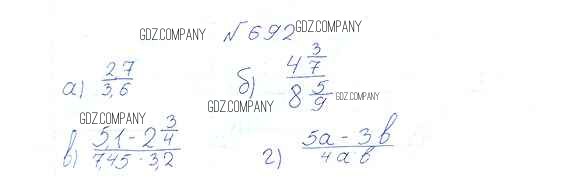 №692
GDZ.COMPANY
GDZ.COMPANY
а) 2,7/3,6
б) 4 3/7 / 8 5/9
GDZ.COMPANY
GDZ.COMPANY
GDZ.COMPANY
в) 5,1 - 2 3/4 / 7,45 · 3,2
г) 5a - 3b / 4ab